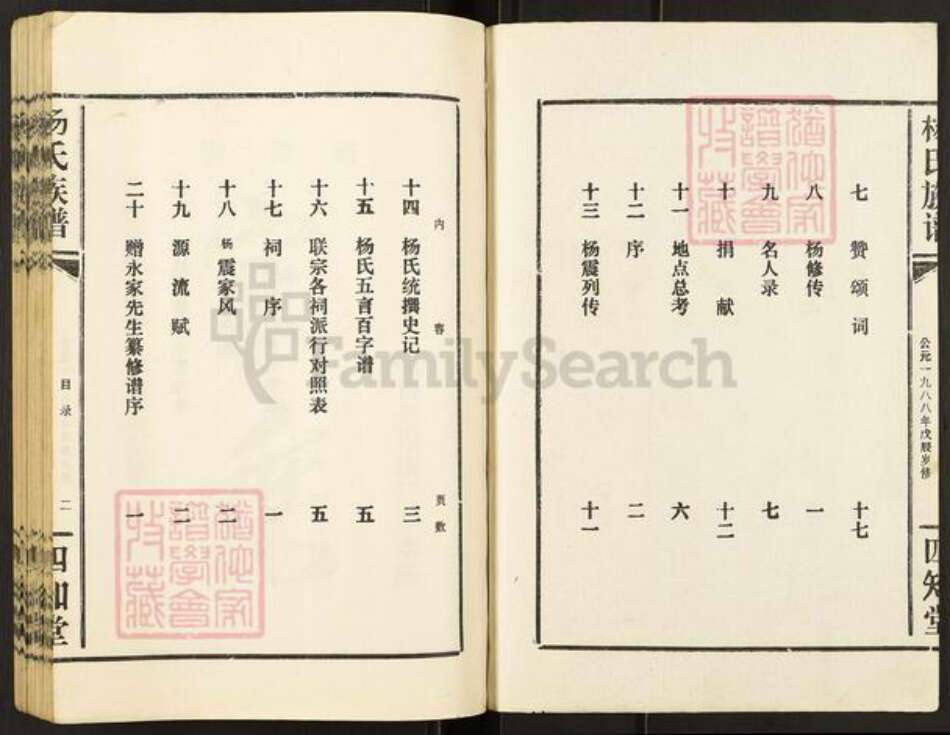 杨氏族谱
公元一九八八年戊辰岁修
四知堂
七 赞颂词 十七
八 杨修传 一
九 名人录 七
十 捐献 十二
十一 地点总考 六
十二 序 二
十三 杨震列传 十一
内容 页数
十四 杨氏统撰史记 三
十五 杨氏五言百字谱 五
十六 联宗各祠派行对照表 五
十七 祠序 一
十八 杨震家风 二
十九 源流赋 二
二十 赠永家先生纂修谱序 一
杨氏族谱
目录
二
四知堂
犹他家
谱学会
收藏
犹他家
谱学会
收藏
FamilySearch